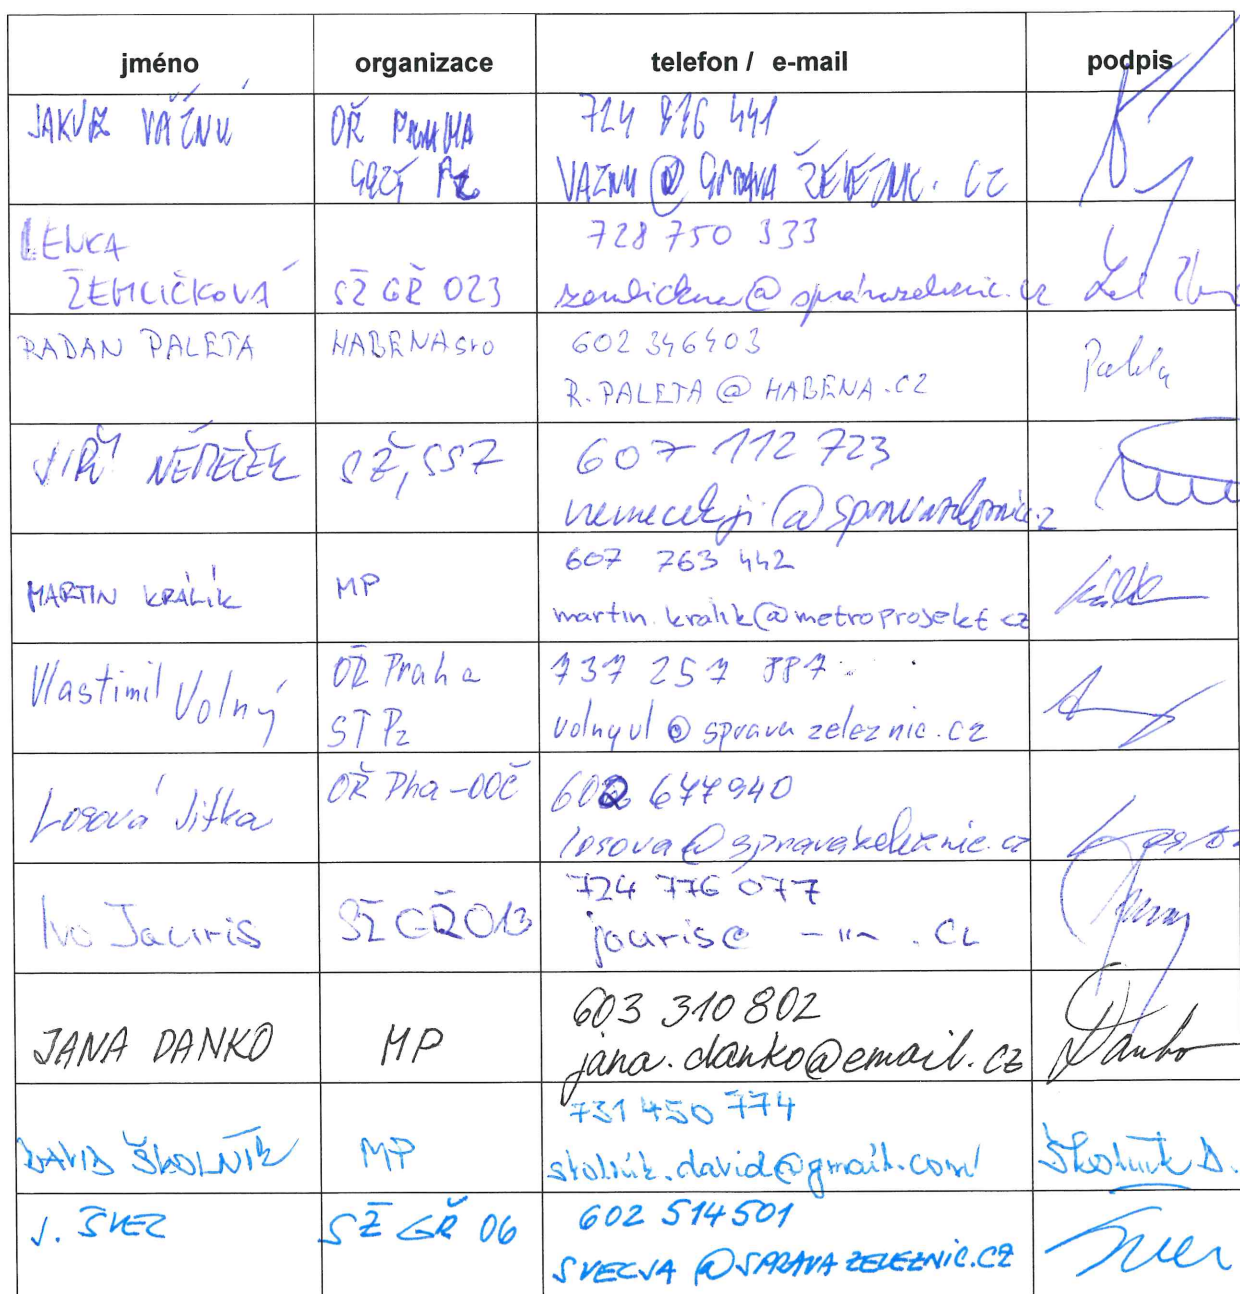 jméno organizace telefon / e-mail podpis
JAKUB VÁŽNÝ OŘ PRAHA 724 816 441
VAZNY@SPRAVAZELEZNIC.CZ
LENKA 728 750 333
ŽEMLIČKOVÁ SŽ GŘ 023 zemlickova@spravazeleznic.cz
RADAN PALETA HABENA sro 602 346403 Paleta
R.PALETA@HABENA.CZ
JIŘÍ NĚMEČEK SŽ, SSZ 607 112 723
nemecekji@spravazeleznic.cz
MARTIN KRÁLÍK MP 607 763 442 Králík
martin.kralik@metroprojekt.cz
Vlastimil Volný OŘ Praha 737 257 887
ST Pz volnyvl@spravazeleznic.cz
Losová Jitka OŘ Pha-OOČ 602 677940
losova@spravazeleznic.cz
Ivo Jauris SŽ GŘ O13 724 776 077
jauris@ -"- .cz
JANA DANKO MP 603 310 802 Danko
jana.danko@email.cz
DAVID ŠKOLNÍK MP 731 450 774 Školník D.
skolnik.david@gmail.com
J. ŠVEC SŽ GŘ 06 602 514501 Švec
SVECJA@SPRAVAZELEZNIC.CZ